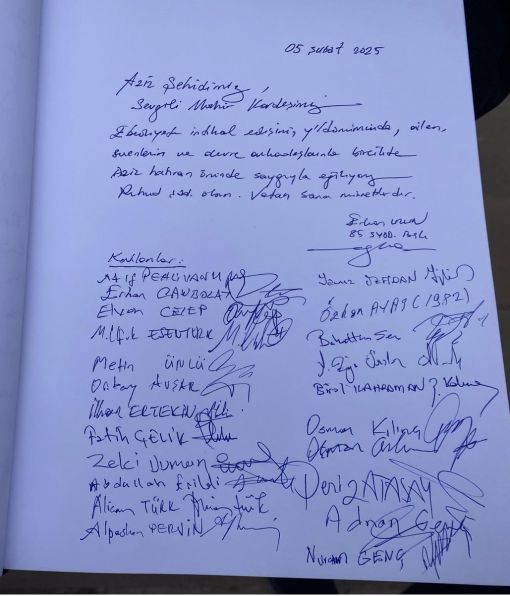 05 Şubat 2025
Aziz Şehidimiz,
Sevgili Mahir Kardeşimiz
Ebediyete intikal edişinin yıldönümünde, ailen,
sevenlerin ve devre arkadaşlarınla birlikte
Aziz hatıran önünde saygıyla eğiliyoruz
Ruhun şad olsun. Vatan sana minnettardır.
Erhan
85
Katılanlar:
PEHLİVANLI
Erhan CANBOLAT
Elvan CELEP
ESENTÜRK
Metin ÜNLÜ
Oktay AVŞAR
İlhan ERTEKİN
Fatih ÇELİK
Zeki Duman
Abdullah
Alican TÜRK
Alpaslan PERVİN
Yavuz
Özkan AYAS (1982)
Bahattin Şen
Birol KAHRAMAN
Osman Kılınç
Osman
Deniz ATASAY
Adnan Genç
Nurcan GENÇ